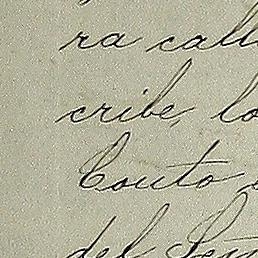 ra call
cribe, lo
Couto
del Señ